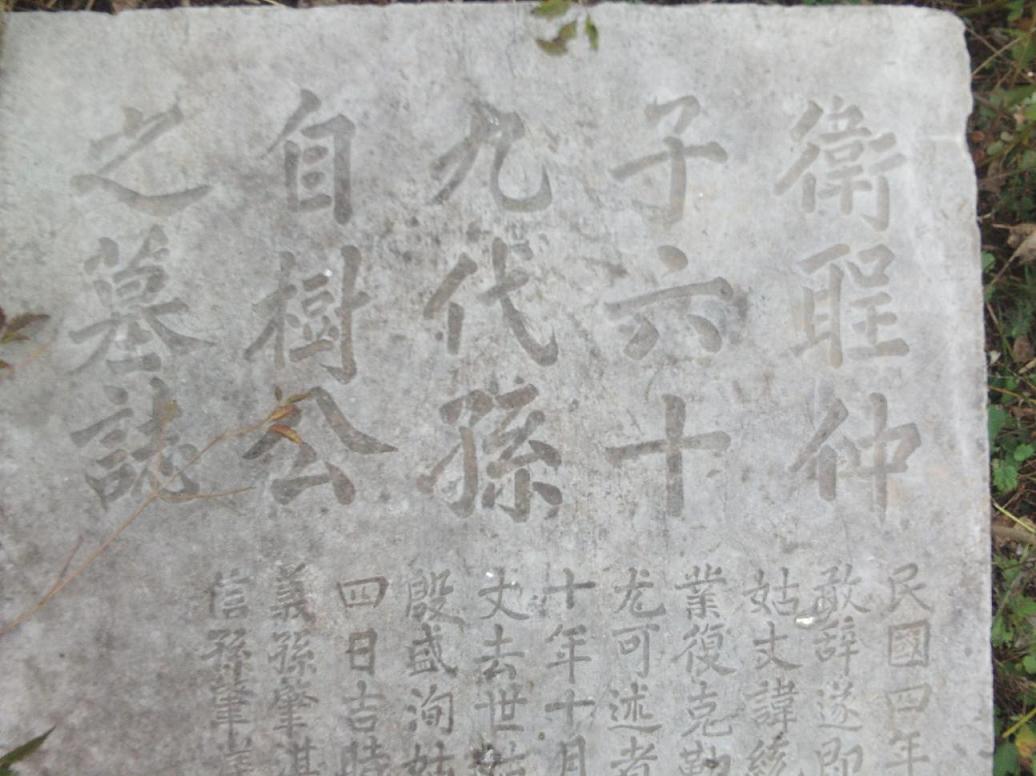 衛聖仲
子六十
九代孫
自樹公
之墓誌
民國四年
敢辞遂即
姑丈諱統
業復克勤
尤可述者
十年十月
丈去世姑
殷盛洵姑
四日吉時
義孫肇淇
信孫肇